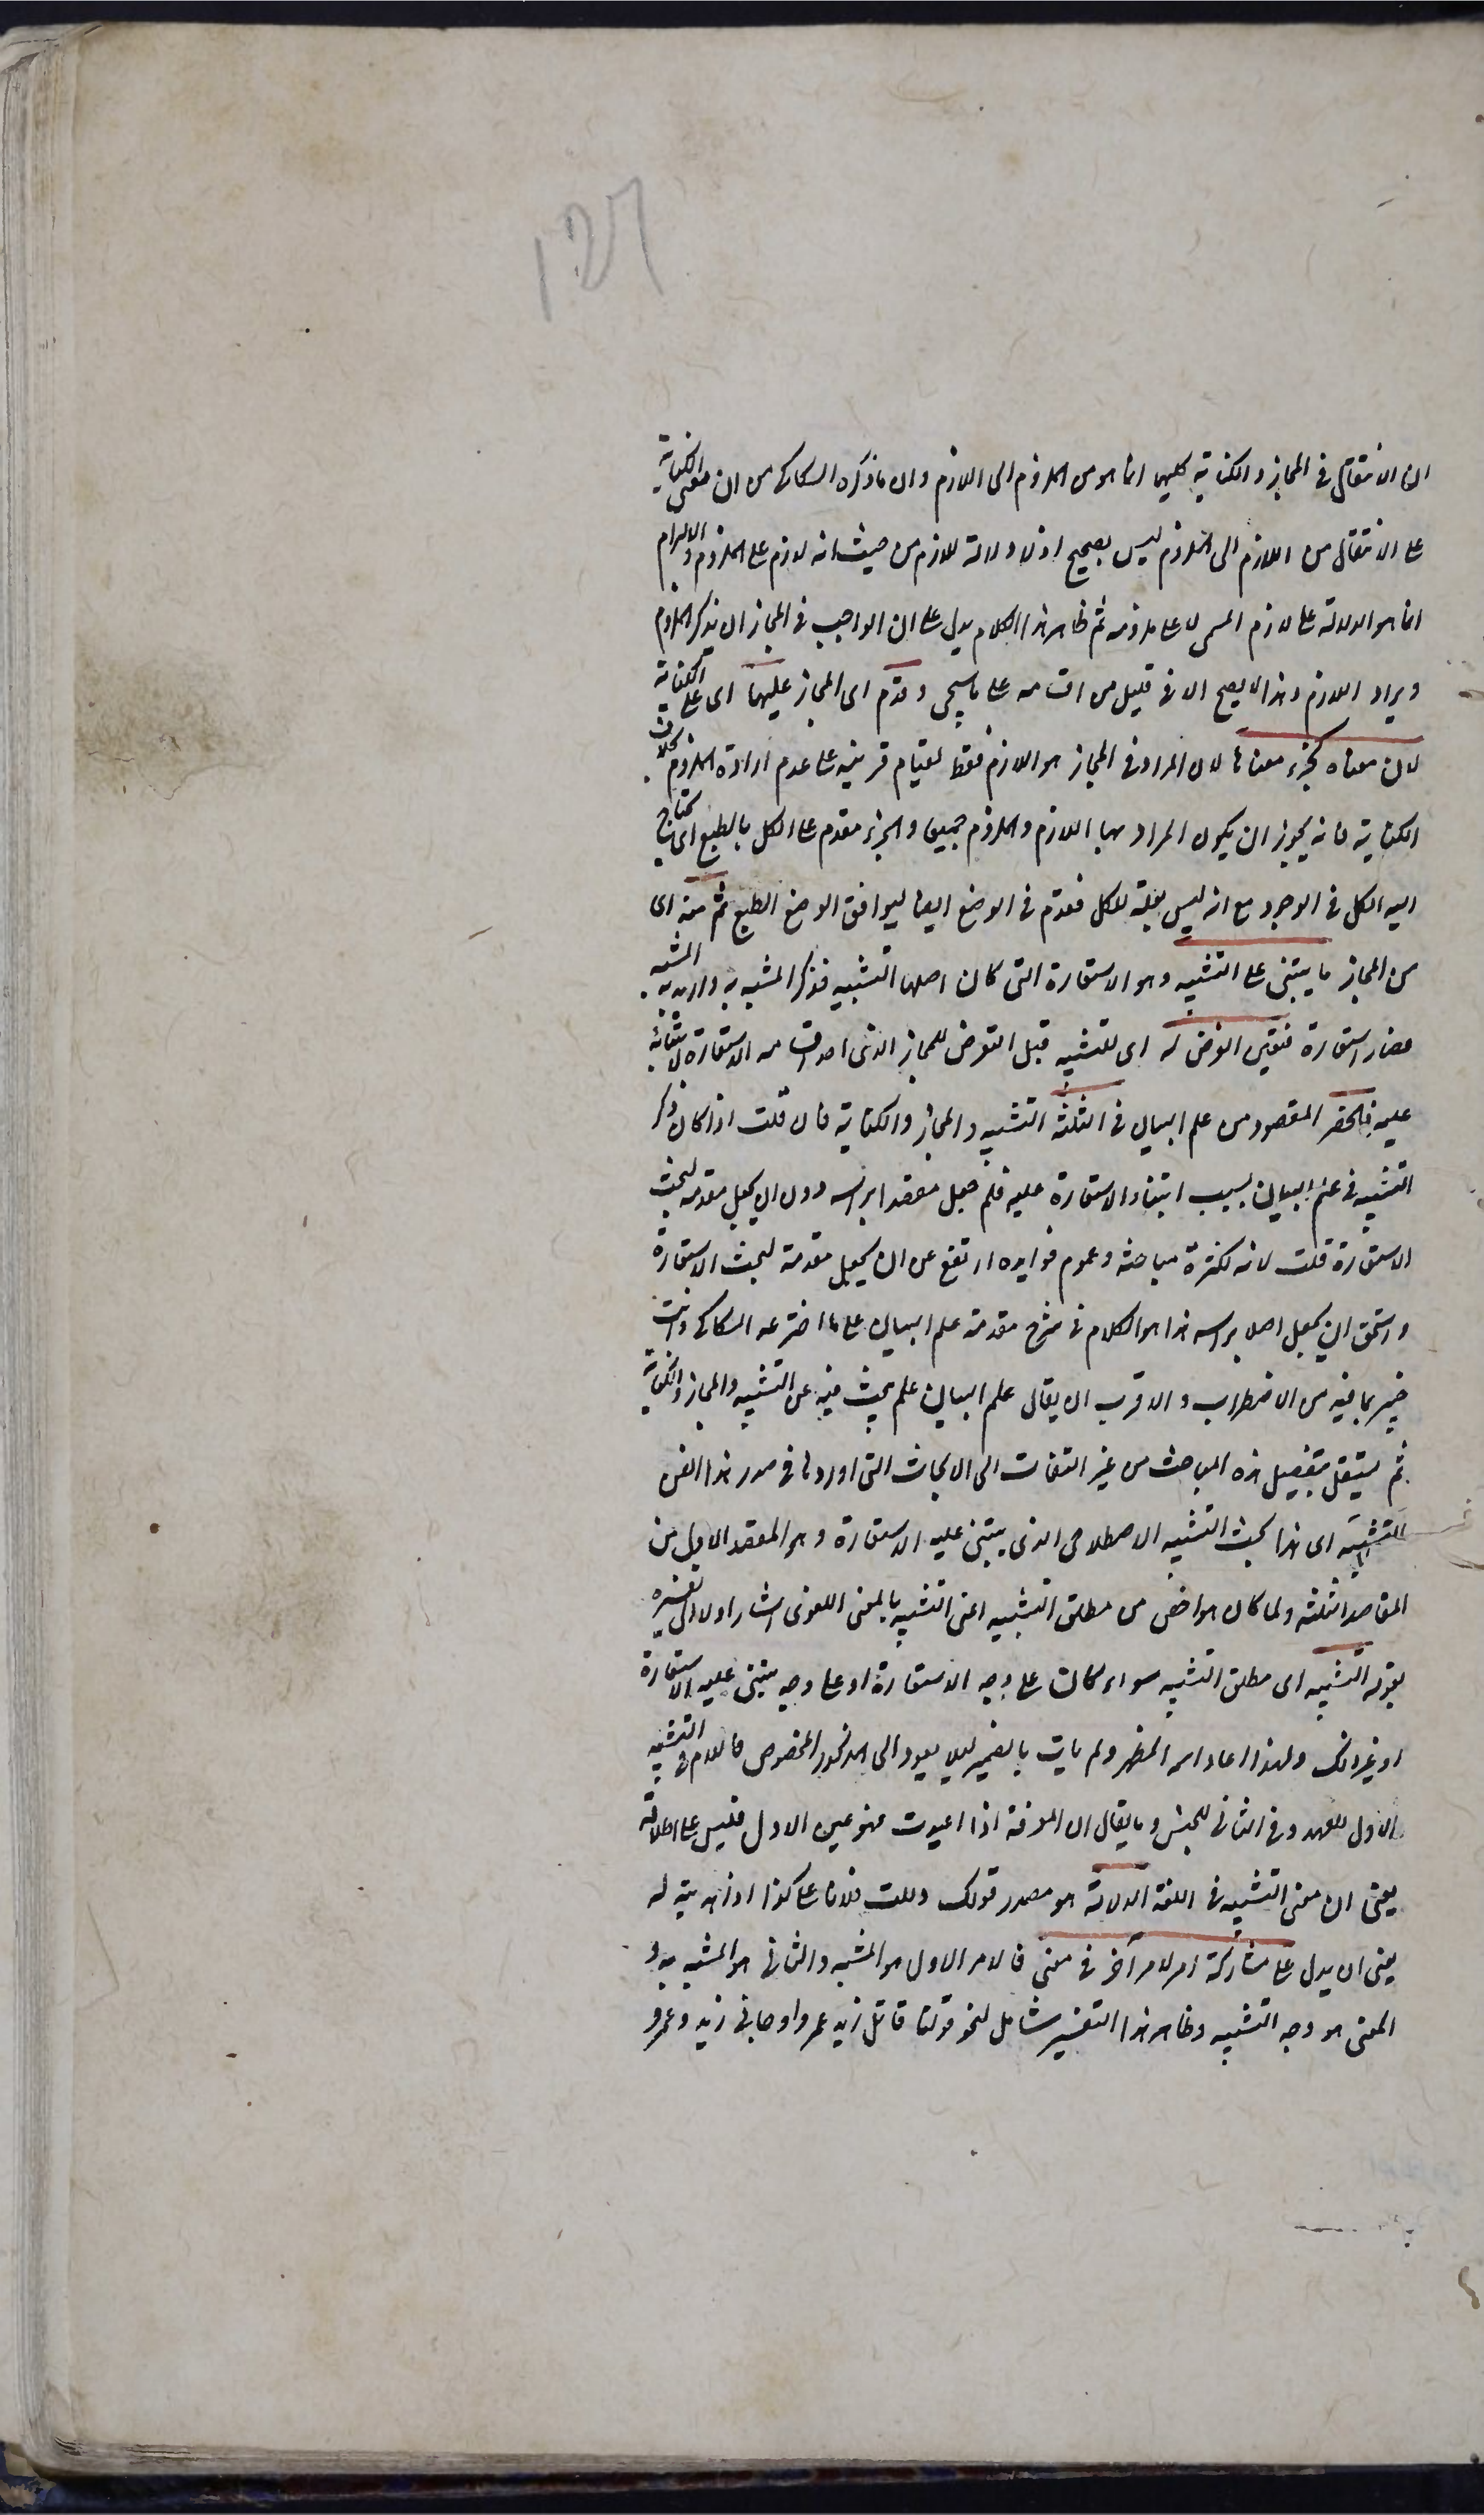 ان الانتقال في المجاز والكناية كليهما انما هو من الملزوم الى اللازم وان ما ذكره السكاكي من ان معنى الكناية
على الانتقال من اللازم الى الملزوم ليس بصحيح اذ لا دلالة للازم من حيث انه لازم على الملزوم والالتزام
انما هو الدلالة على لازم المسمى لا على ملزومه ثم ظاهر هذا الكلام يدل على ان الواجب في المجاز ان يذكر الملزوم
ويراد اللازم وهذا لا يصح الا في قليل من اقسامه على ما سيجى وقدم اى المجاز عليها اى على الكناية
لان معناه كجزء معناها لان المراد في المجاز هو اللازم فقط لقيام قرينة على عدم ارادة الملزوم بخلاف
الكناية فانه يجوز ان يكون المراد بها اللازم والملزوم جميعا والجزء مقدم على الكل بالطبع اى يحتاج
اليه الكل في الوجود مع انه ليس بعلة للكل فقدم في الوضع ايضا ليوافق الوضع الطبع ثم منه اى
من المجاز ما يبتنى على التشبيه وهو الاستعارة التى كان اصلها التشبيه فذكر المشبه به واريد به المشبه
فصار استعارة فتعين التعرض له اى للتشبيه قبل التعرض للمجاز الذى احد اقسامه الاستعارة لابتنائه
عليه فانحصر المقصود من علم البيان في الثلثة التشبيه والمجاز والكناية فان قلت اذا كان ذكر
التشبيه في علم البيان بسبب ابتناء الاستعارة عليه فلم جعل مقصدا برأسه دون ان يجعل مقدمة لبحث
الاستعارة قلت لانه لكثرة مباحثه وعموم فوايده ارتفع عن ان يجعل مقدمة لبحث الاستعارة
واستحق ان يجعل اصلا برأسه هذا هو الكلام في شرح مقدمة علم البيان على ما اخترعه السكاكي وانت
خبير بما فيه من الاضطراب والاقرب ان يقال علم البيان علم يبحث فيه عن التشبيه والمجاز والكناية
ثم يشتغل بتفصيل هذه المباحث من غير التفات الى الابحاث التى اوردها في صدر هذا الفن
التشبيه اى هذا بحث التشبيه الاصطلاحى الذى يبتنى عليه الاستعارة وهو المقصد الاول من
المقاصد الثلثة ولما كان هو اخص من مطلق التشبيه اعنى التشبيه بالمعنى اللغوى اشار اولا الى تفسيره
بقوله التشبيه اى مطلق التشبيه سواء كان على وجه الاستعارة او على وجه يبتنى عليه الاستعارة
او غير ذلك ولهذا اعاد اسمه المظهر ولم يات بالضمير لئلا يعود الى المذكور المخصوص فاللام في التشبيه
الاول للعهد وفي الثانى للجنس وما يقال ان المعرفة اذا اعيدت فهو عين الاول فليس على اطلاقه
يعنى ان معنى التشبيه في اللغة الدلالة هو مصدر قولك دللت فلانا على كذا اذا هديته له
يعنى ان يدل على مشاركة امر لامر آخر في معنى فالامر الاول هو المشبه والثانى هو المشبه به و
المعنى هو وجه التشبيه وظاهر هذا التفسير شامل لنحو قولنا قاتل زيد عمروا وجاءنى زيد وعمرو